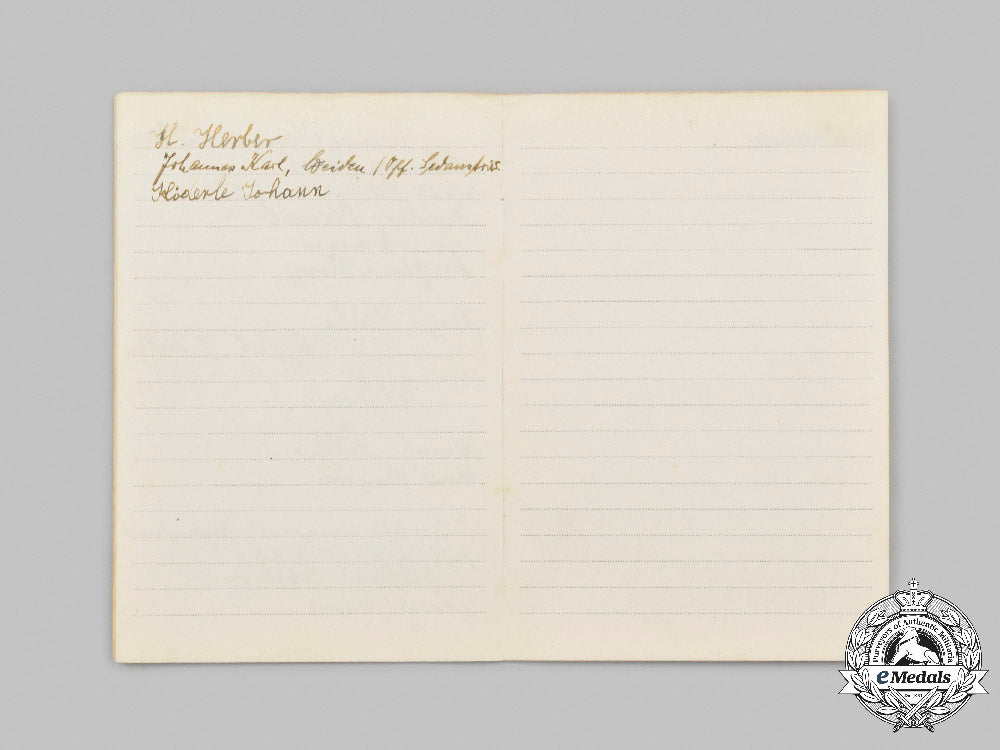 H. Herber
Johannes Karl, Weiden / Opf. Sedanstr.
Johann
Purveyors of Authentic Militaria
eMedals